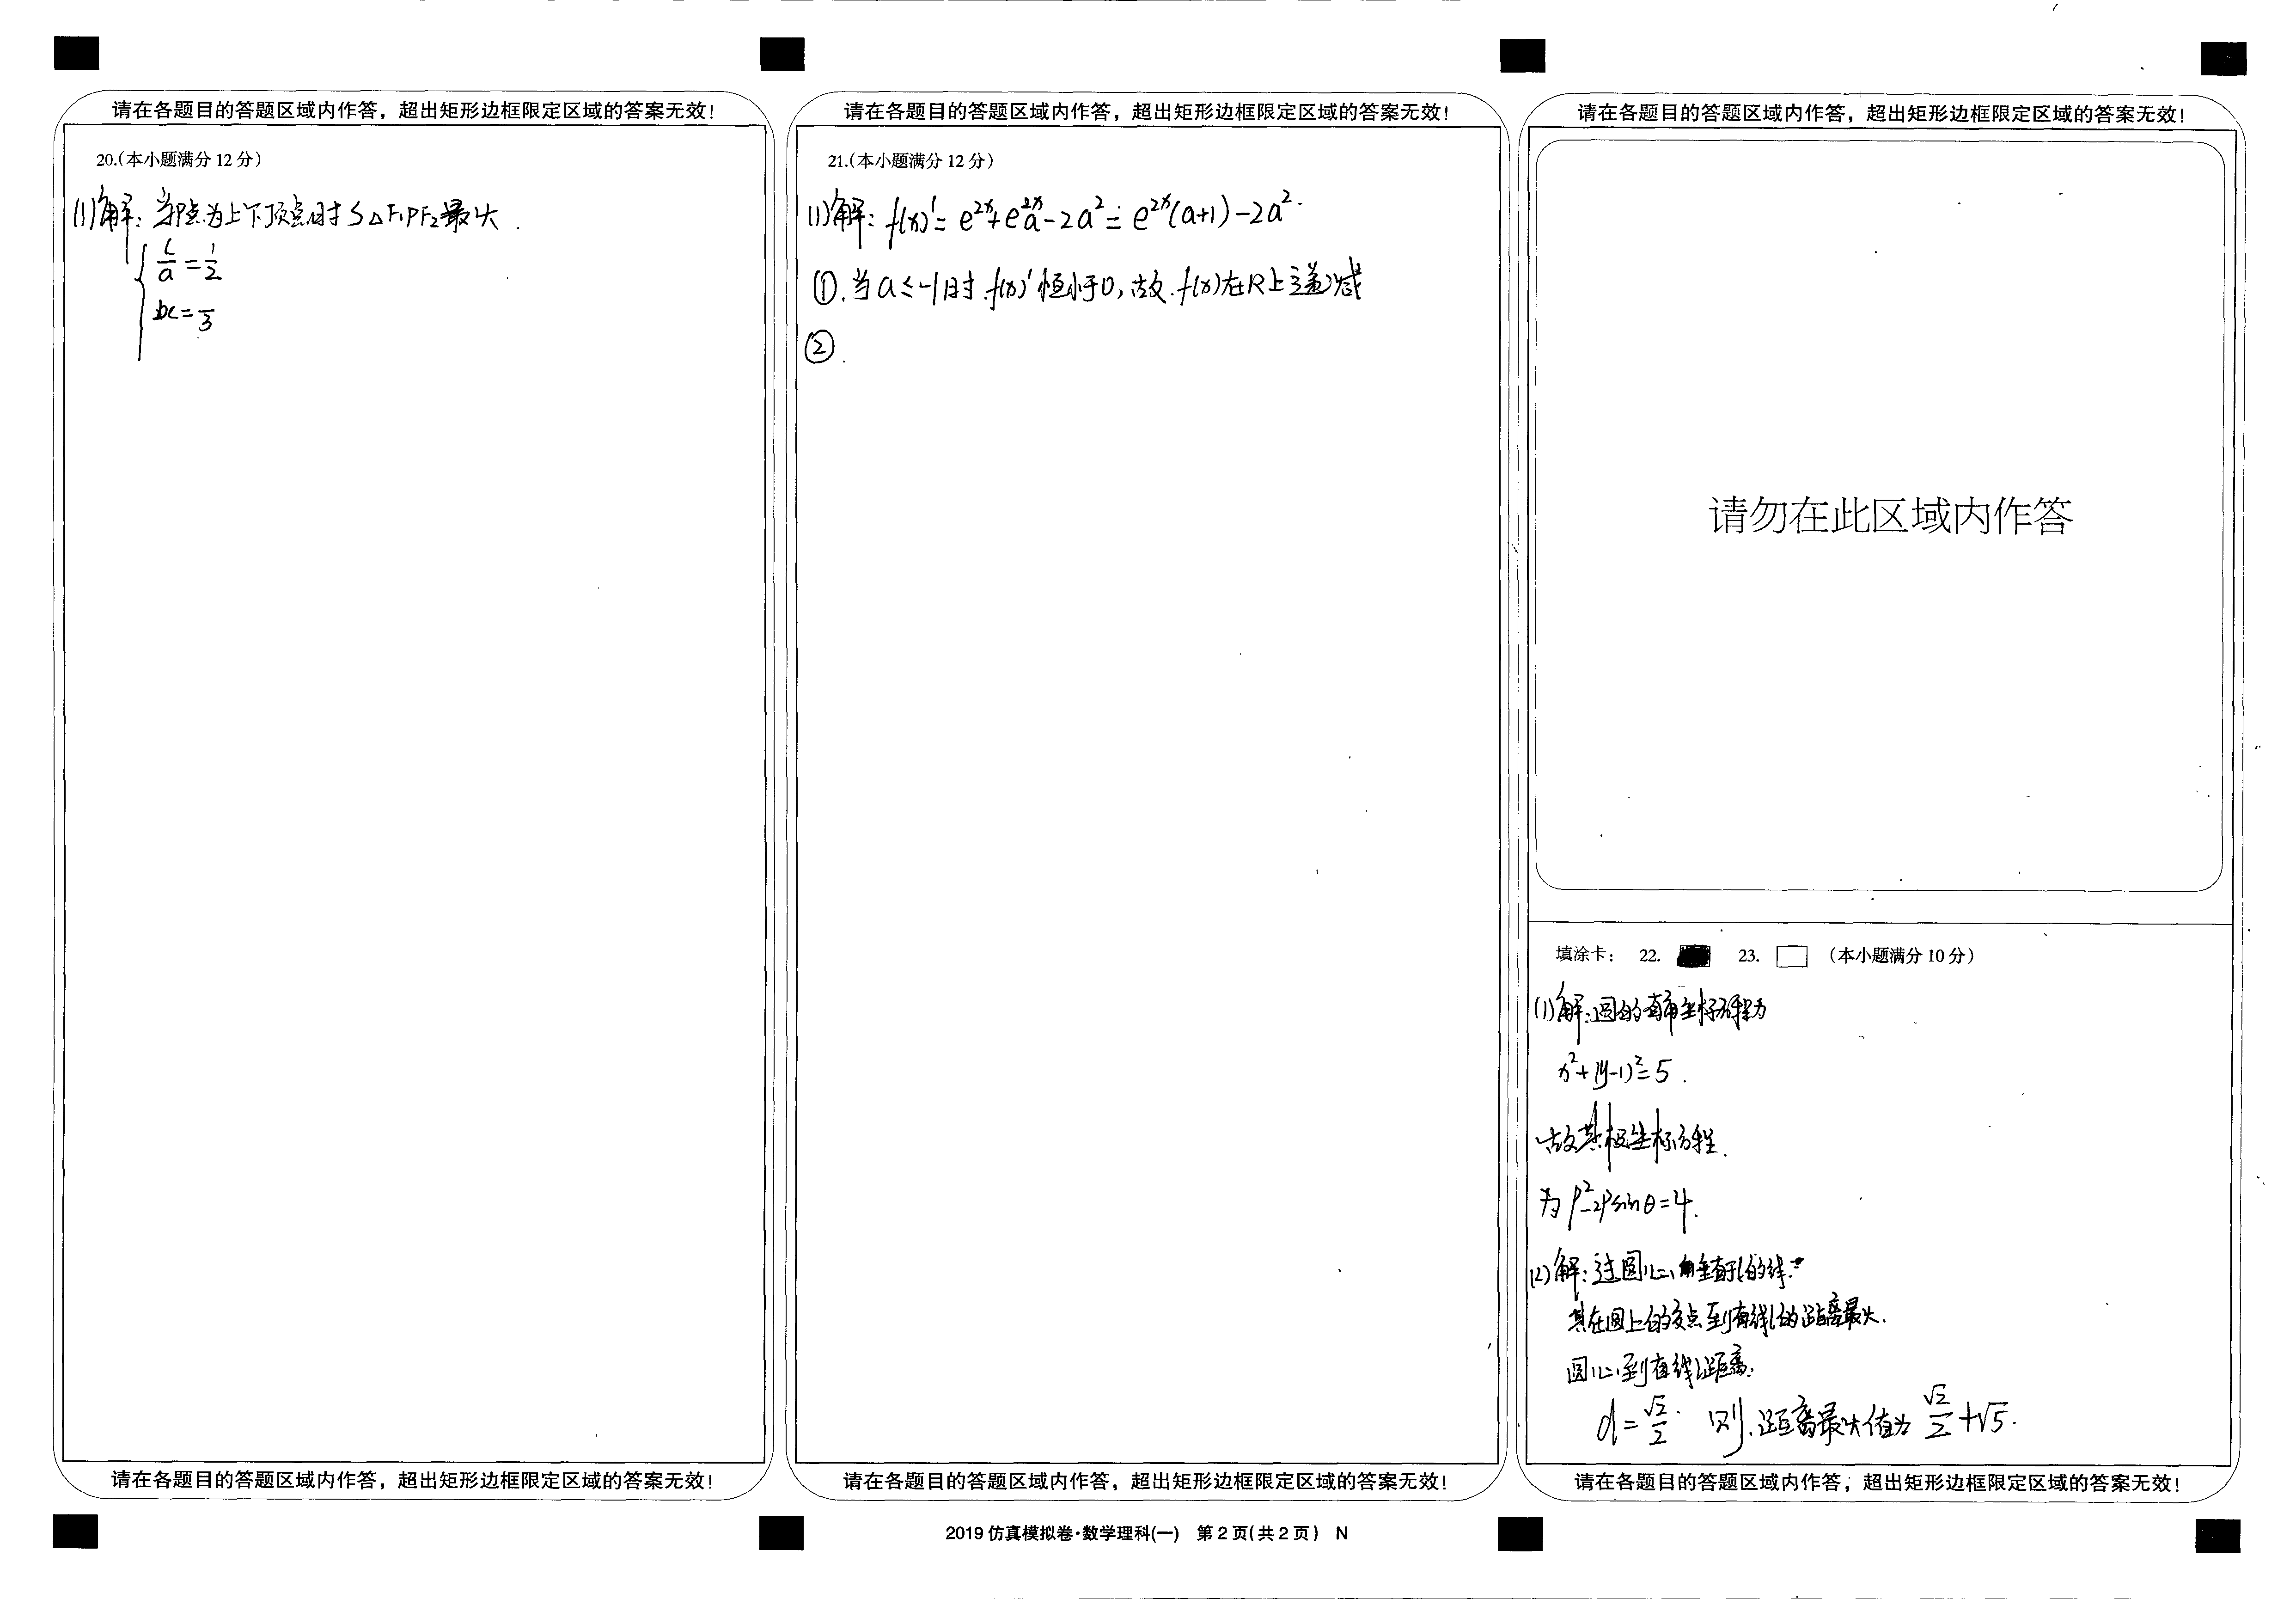 请在各题目的答题区域内作答，超出矩形边框限定区域的答案无效！
20.(本小题满分 12 分)
(1)解：当P点为上下顶点时 S△F₁PF₂最大.
c/a = 1/2
bc = √3
请在各题目的答题区域内作答，超出矩形边框限定区域的答案无效！
请在各题目的答题区域内作答，超出矩形边框限定区域的答案无效！
21.(本小题满分 12 分)
(1)解：f(x)' = e^{2x}+e^{2x}a-2a² = e^{2x}(a+1)-2a².
①.当 a≤-1时 f(x)'恒小于0，故 f(x)在R上递减
②.
请在各题目的答题区域内作答，超出矩形边框限定区域的答案无效！
请在各题目的答题区域内作答，超出矩形边框限定区域的答案无效！
请勿在此区域内作答
填涂卡： 22. 23. （本小题满分 10 分）
(1)解：圆的直角坐标方程为
x²+(y-1)²=5.
故其极坐标方程.
为 ρ²-2ρsinθ=4.
(2)解：过圆心 垂直于l的线
其在圆上的交点到直线l的距离最大.
圆心到直线l距离.
d=√2/2. 则.距离最大值为 √2/2+√5.
请在各题目的答题区域内作答；超出矩形边框限定区域的答案无效！
2019 仿真模拟卷·数学理科(一) 第 2 页(共 2 页) N